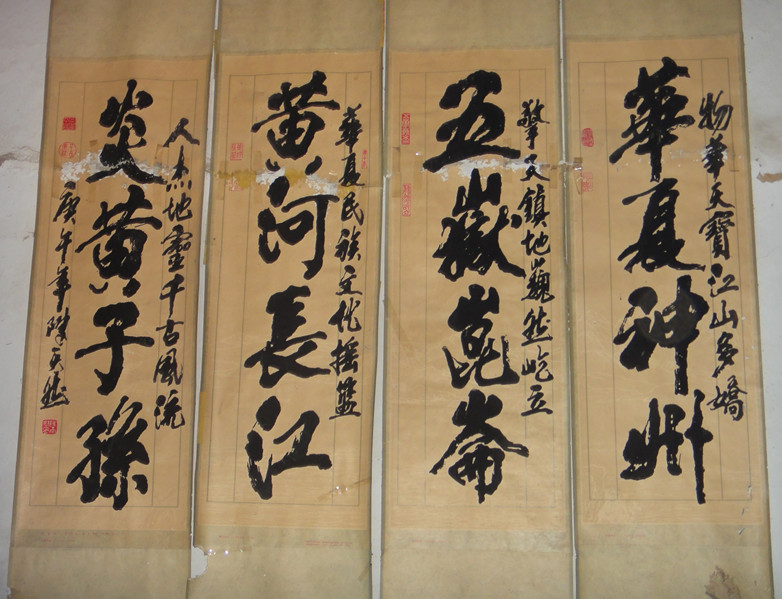 物華天寶江山多嬌
華夏神州
擎天鎮地巍然屹立
五嶽崑崙
華夏民族文化摇籃
黄河長江
人杰地靈千古風流
炎黄子孫
庚午年陳天然